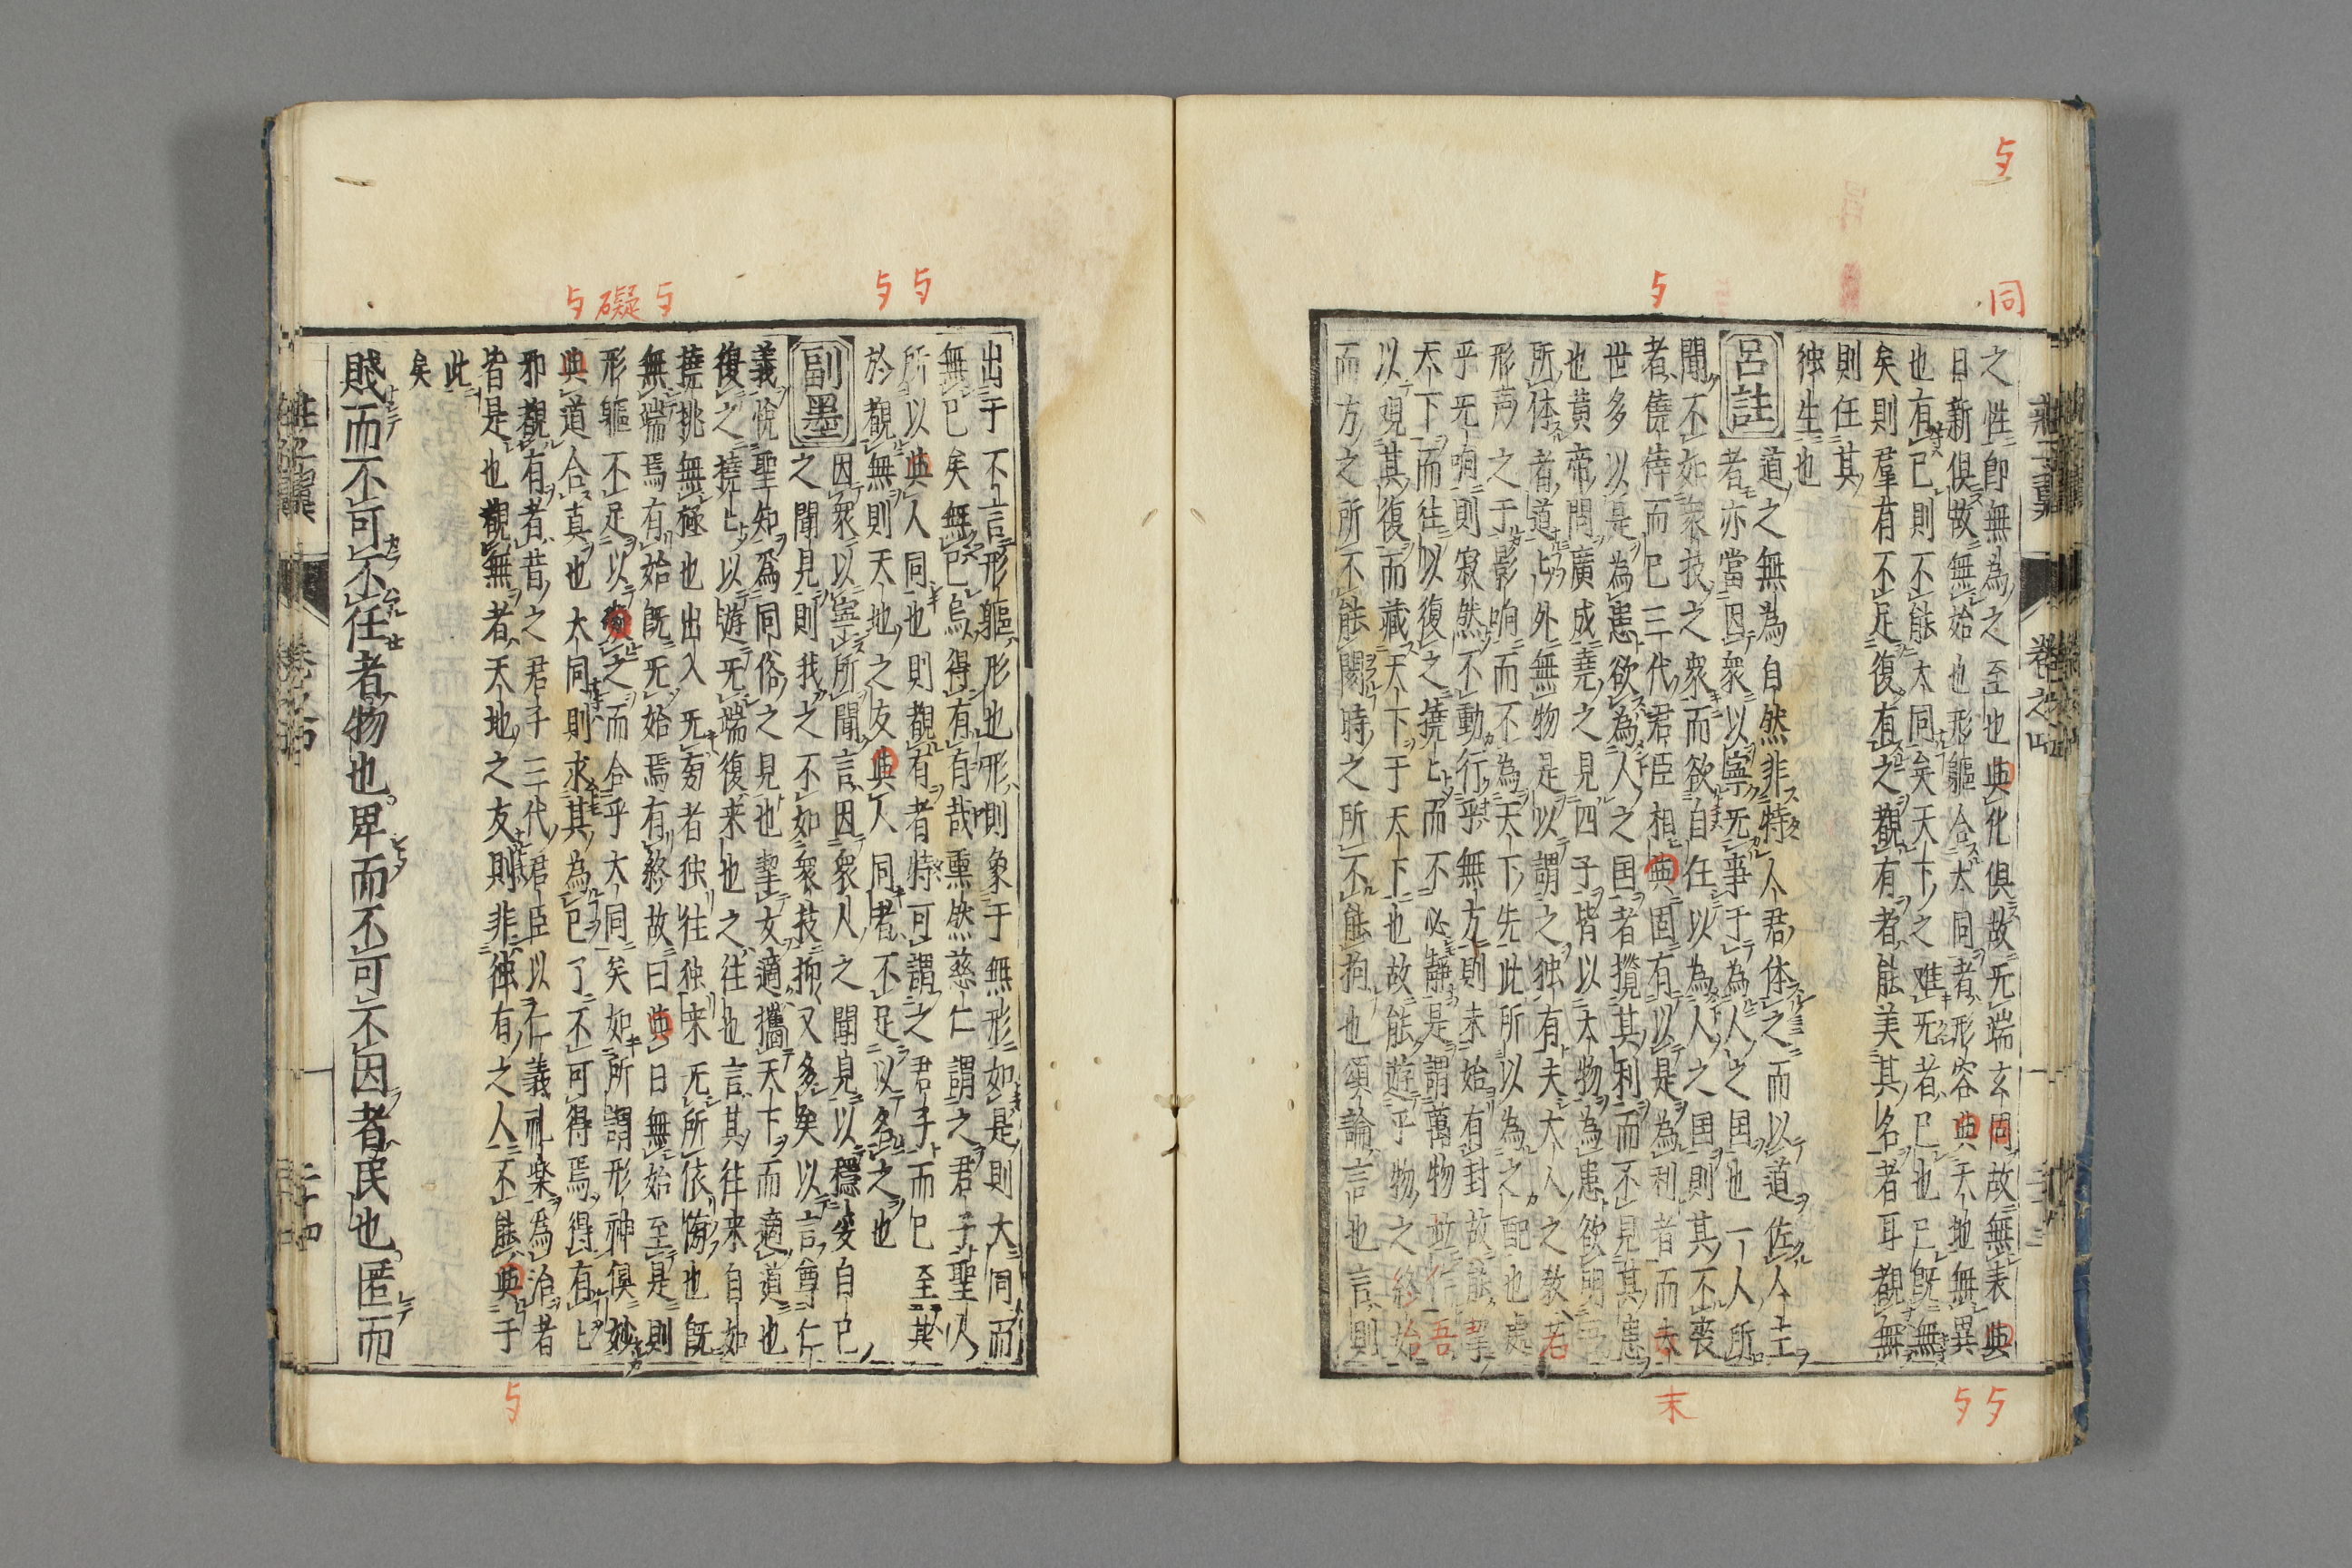 之性即無為之至也典化俱故无端玄同故無表典
日新俱故無始也形軀合大同者形容典天地無異
也有己則不能大同矣天下之难无者己也己既無
矣則羣有不足復有之覩有者能美其名者耳覩無
則任其
独生也
呂註
道之無為自然非特人君体之而以道佐人主
者亦當因衆以寧无事于為人之国也一人所
聞不如衆技之衆而欲自任以為人之国則其不喪
者僥倖而已三代君臣相典固有以是為利者而未
世多以是為患欲為人之国者攬其利而不見其患
也黄帝問廣成堯之見四子皆以大物為患欲明吾
所体者道止外無物是以謂之独有夫大人之教若
形声之于影响而不為天下先此所以為之配也處
乎无响則寂然不動行乎無方則未始有封故能挈
天下而往以復之撓止而不必静是謂萬物並吾
以現其復而藏天下于天下也故能遊乎物之終始
而方之所不能閡時之所不能拘也頌論言也言則
出于不言形軀形也形則象于無形如是則大同而
無己矣無己烏得有有哉熏然慈仁謂之君子聖人
所以典人同也則覩有者特可謂之君子而已至其
於覩無則天地之友典人同者不足以名之也
副墨
因衆以寧所聞言因衆人之聞見以穏妥自已
之聞見則我之不如衆技抑又多矣以言尊仁
義悅聖知為同俗之見也挈女適攜天下而適道也
復之撓止以遊无端復来也之往也言其往来自如
撓挑無極也出入无旁者独往独来无所依傍也既
無端焉有始既无始焉有終故曰典日無始至是則
形軀不足以碍之而合乎大同矣如所謂形神俱妙
典道合真也大同則求其為已了不可得焉得有匕
邪覩有者昔之君子三代君臣以仁義礼楽為治者
皆是也覩無者天地之友則非独有之人不能典于
此
矣
賤而不可不任者物也卑而不可不因者民也匿而
莊子翼
卷之四
同
末
礙